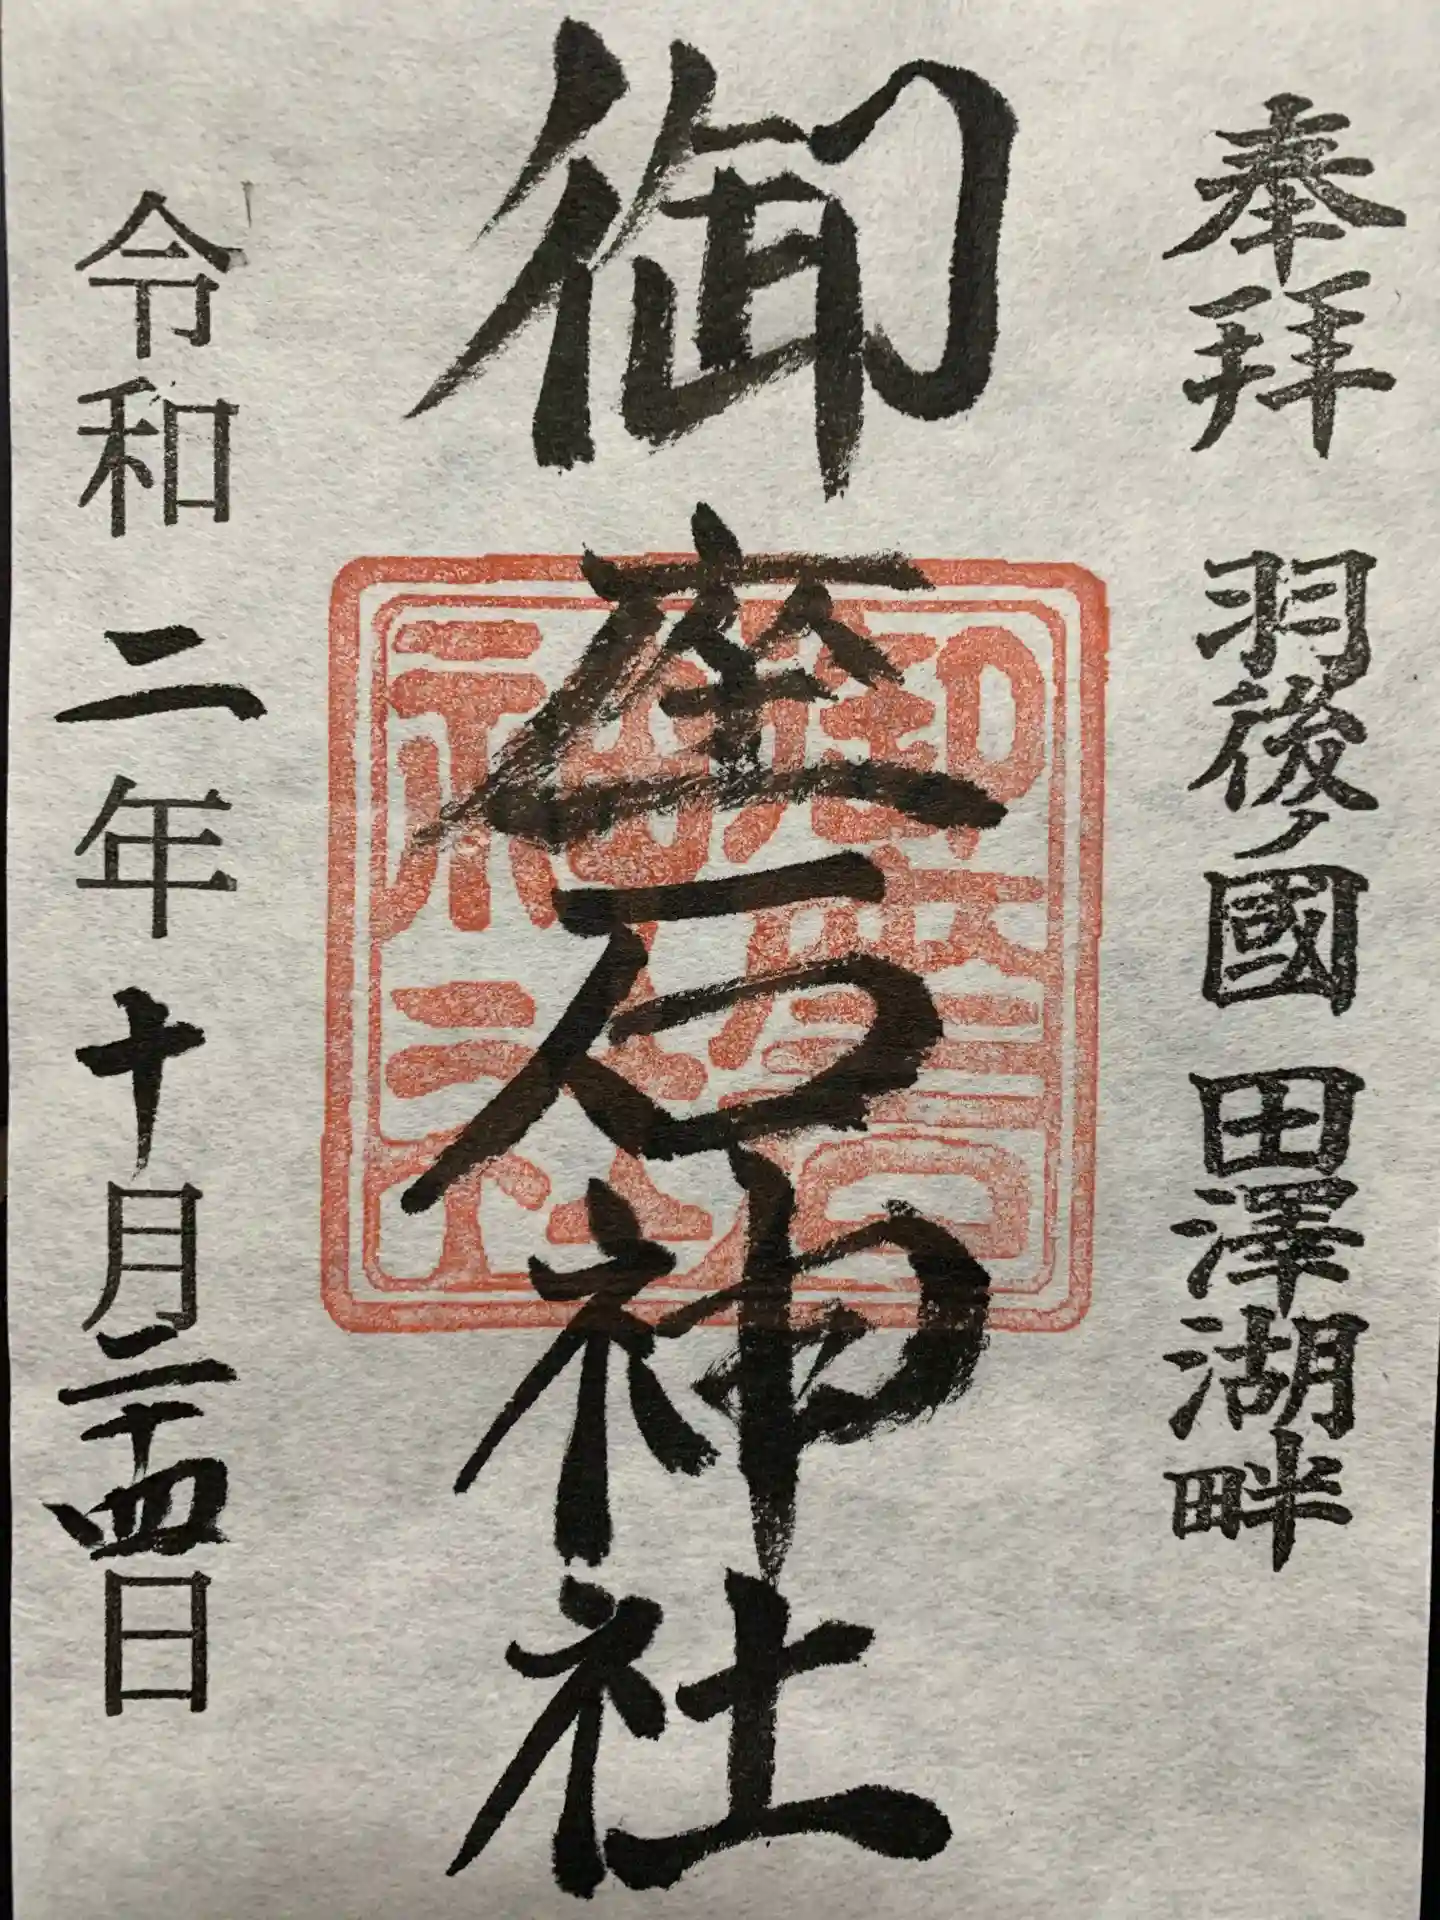 奉拜 羽後ノ國 田澤湖畔
御座石神社
令和二年十月二十四日